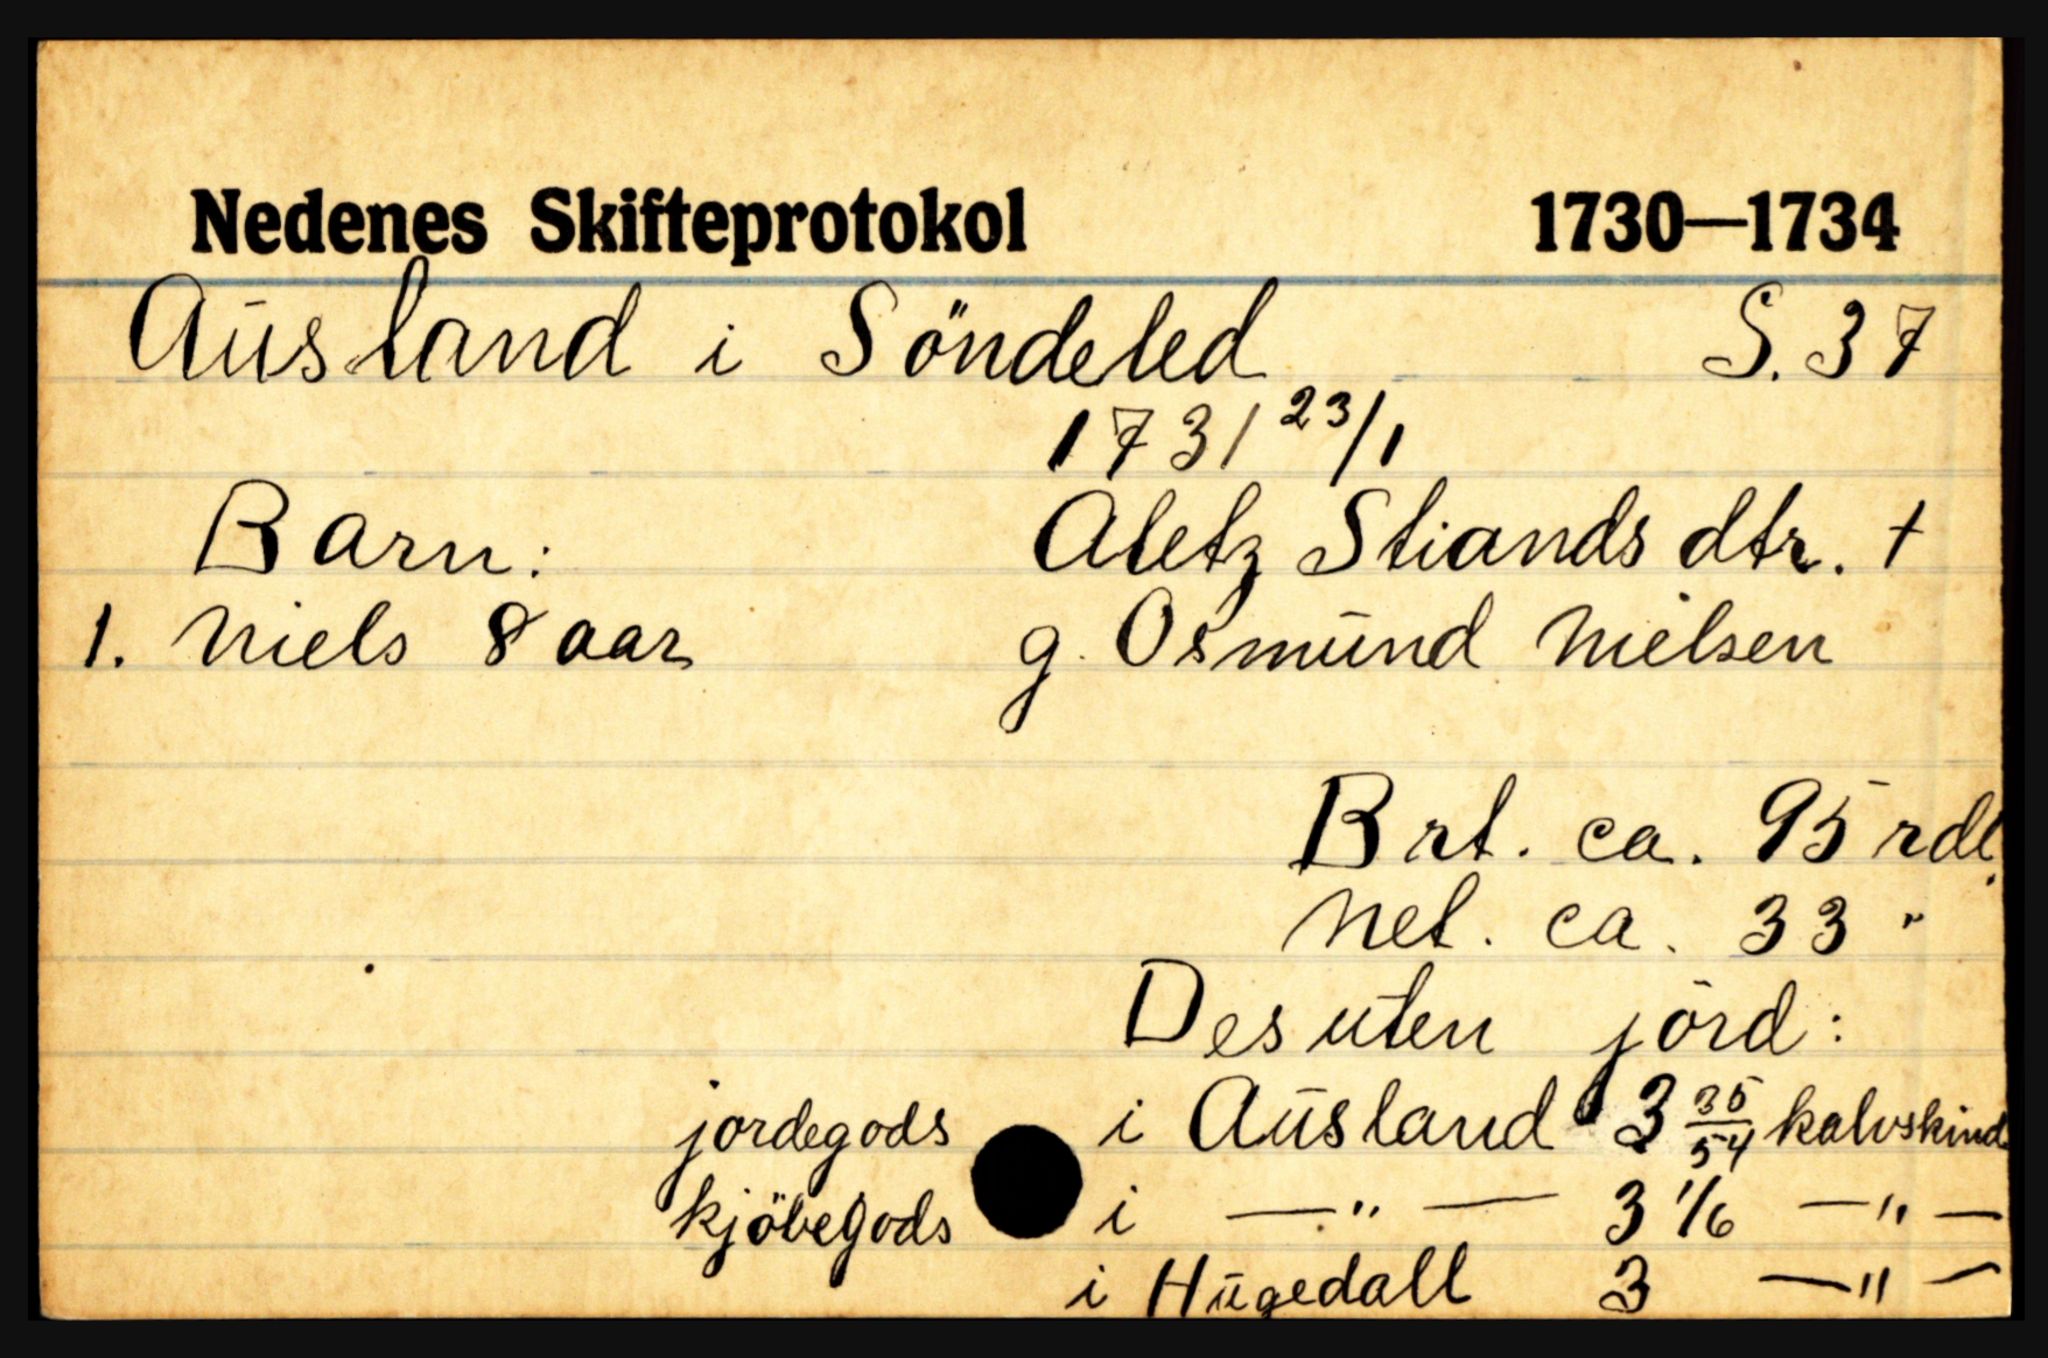 Nedenes Skifteprotokol 1730—1734
Ausland i Söndeled S. 37
1731 23/1
Barn: Aletz Stiandsdtr. †
1. Niels 8 aar g. Osmund Nielsen
Brt. ca. 95 rdl.
Net. ca. 33 "
Desuten jord:
jordegods i Ausland 3 35/54 kalvskind
kjöbegods i —"— 3 1/6 —"—
i Hugedall 3 —"—